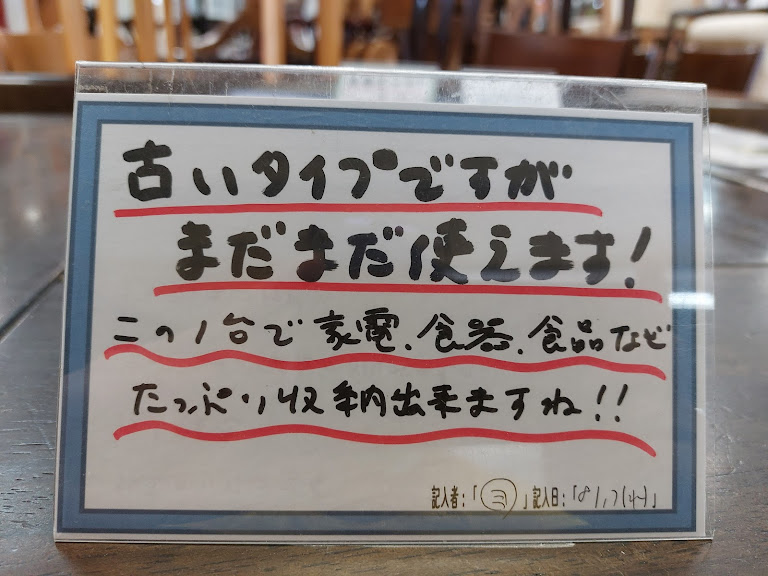 古いタイプですが
まだまだ使えます!
この1台で家電、食器、食品など
たっぷり収納出来ますね!!
記入者:「ヨ」記入日:「8/17(水)」